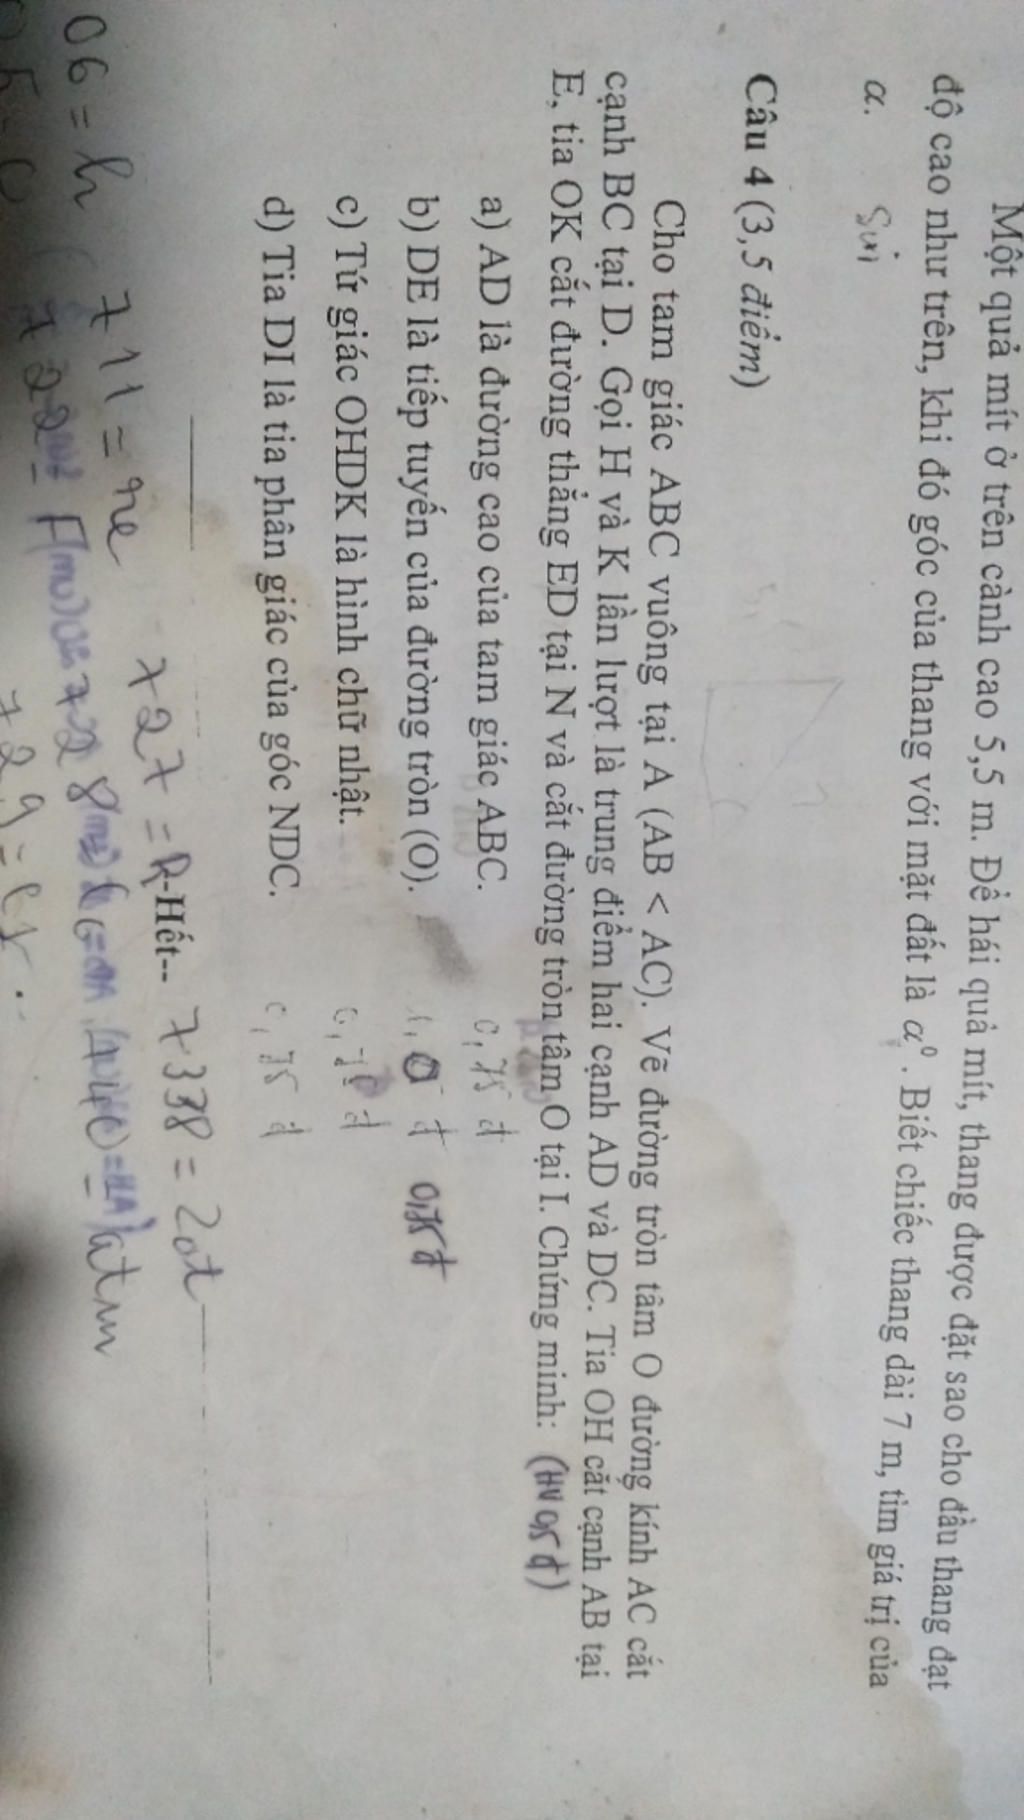 Một quả mít ở trên cành cao 5,5 m. Để hái quả mít, thang được đặt sao cho đầu thang đạt
độ cao như trên, khi đó góc của thang với mặt đất là α⁰. Biết chiếc thang dài 7 m, tìm giá trị của
α. Sin
Câu 4 (3,5 điểm)
Cho tam giác ABC vuông tại A (AB < AC). Vẽ đường tròn tâm O đường kính AC cắt
cạnh BC tại D. Gọi H và K lần lượt là trung điểm hai cạnh AD và DC. Tia OH cắt cạnh AB tại
E, tia OK cắt đường thẳng ED tại N và cắt đường tròn tâm O tại I. Chứng minh: (HV 0,5 đ)
a) AD là đường cao của tam giác ABC. 0,75 đ
b) DE là tiếp tuyến của đường tròn (O). đ 0,75đ
c) Tứ giác OHDK là hình chữ nhật. 0,75 đ
d) Tia DI là tia phân giác của góc NDC. 0,75 đ
-Hết--
7338 = 2at
727 = R
711 = ne
06 = h